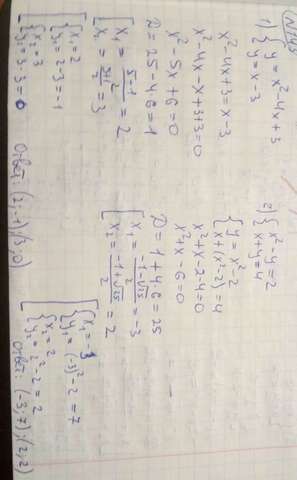 1) { y = x² - 4x + 3
y = x - 3
x² - 4x + 3 = x - 3
x² - 4x - x + 3 + 3 = 0
x² - 5x + 6 = 0
D = 25 - 4·6 = 1
[ x₁ = (5 - 1)/2 = 2
x₂ = (5 + 1)/2 = 3
[ { x₁ = 2
y₁ = 2 - 3 = -1
{ x₂ = 3
y₂ = 3 - 3 = 0
Ответ: (2; -1) (3; 0)
2) { x² - y = 2
x + y = 4
{ y = x² - 2
x + (x² - 2) = 4
x² + x - 2 - 4 = 0
x² + x - 6 = 0
D = 1 + 4·6 = 25
[ x₁ = (-1 - √25)/2 = -3
x₂ = (-1 + √25)/2 = 2
[ { x₁ = -3
y₁ = (-3)² - 2 = 7
{ x₂ = 2
y₂ = 2² - 2 = 2
Ответ: (-3; 7); (2; 2)